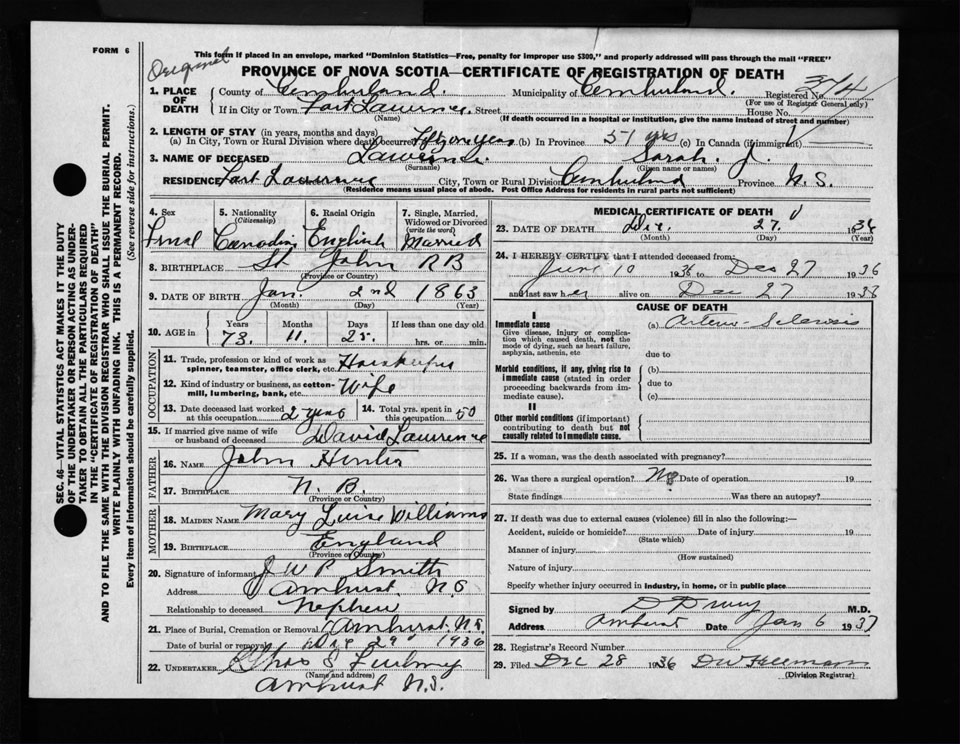 FORM 6
This form if placed in an envelope, marked "Dominion Statistics—Free, penalty for improper use $300," and properly addressed will pass through the mail "FREE"
Original
PROVINCE OF NOVA SCOTIA—CERTIFICATE OF REGISTRATION OF DEATH
374
1. PLACE OF DEATH
County of Cumberland. Municipality of Cumberland. Registered No.
(For use of Registrar General only)
If in City or Town Fort Lawrence Street House No.
(Name) (If death occurred in a hospital or institution, give the name instead of street and number)
2. LENGTH OF STAY (in years, months and days)
(a) In City, Town or Rural Division where death occurred Fifty one Years (b) In Province 51 yrs (c) In Canada (if immigrant)
3. NAME OF DECEASED Lawrence. Sarah. J.
(Surname) (Given name or names)
RESIDENCE Fort Lawrence City, Town or Rural Division Cumberland Province N.S.
(Residence means usual place of abode. Post Office Address for residents in rural parts not sufficient)
4. Sex 5. Nationality (Citizenship) 6. Racial Origin 7. Single, Married, Widowed or Divorced (write the word)
Canadian English Married
8. BIRTHPLACE St John
(Province or Country)
9. DATE OF BIRTH Jan. 2nd 1863
(Month) (Day) (Year)
10. AGE in Years Months Days If less than one day old
73. 11. 25. hrs. or min.
OCCUPATION
11. Trade, profession or kind of work as spinner, teamster, office clerk, etc. Housekeeper
12. Kind of industry or business, as cotton-mill, lumbering, bank, etc. Wife
13. Date deceased last worked at this occupation 2 years 14. Total yrs. spent in this occupation 50
15. If married give name of wife or husband of deceased David Lawrence
FATHER
16. NAME John Hunter
17. BIRTHPLACE N.B.
(Province or Country)
MOTHER
18. MAIDEN NAME Mary Luise Williams
19. BIRTHPLACE England
(Province or Country)
20. Signature of informant J W P Smith
Address Amherst. N.S
Relationship to deceased Nephew
21. Place of Burial, Cremation or Removal Amherst N.S.
Date of burial or removal Dec 29" 1936
22. UNDERTAKER Chas S
(Name and address)
Amherst N.S.
MEDICAL CERTIFICATE OF DEATH
23. DATE OF DEATH Dec. 27. 1936
(Month) (Day) (Year)
24. I HEREBY CERTIFY that I attended deceased from:
June 10 1936 to Dec 27 1936
and last saw her alive on Dec 27 1936
CAUSE OF DEATH
I
Immediate cause (a) Arterio-Sclerosis
Give disease, injury or complication which caused death, not the mode of dying, such as heart failure, asphyxia, asthenia, etc
due to
Morbid conditions, if any, giving rise to immediate cause (stated in order proceeding backwards from immediate cause).
(b)
due to
(c)
II
Other morbid conditions (if important) contributing to death but not causally related to immediate cause.
25. If a woman, was the death associated with pregnancy?
26. Was there a surgical operation? No Date of operation 19
State findings Was there an autopsy?
27. If death was due to external causes (violence) fill in also the following:—
Accident, suicide or homicide? Date of injury 19
(State which)
Manner of injury
(How sustained)
Nature of injury
Specify whether injury occurred in industry, in home, or in public place
Signed by M.D.
Address Amherst Date Jan 6 1937
28. Registrar's Record Number
29. Filed Dec 28 1936
(Division Registrar)
SEC. 46—VITAL STATISTICS ACT MAKES IT THE DUTY
OF THE UNDERTAKER OR PERSON ACTING AS UNDER-
TAKER TO OBTAIN ALL THE PARTICULARS REQUIRED
IN THE "CERTIFICATE OF REGISTRATION OF DEATH"
AND TO FILE THE SAME WITH THE DIVISION REGISTRAR WHO SHALL ISSUE THE BURIAL PERMIT.
WRITE PLAINLY WITH UNFADING INK. THIS IS A PERMANENT RECORD.
Every item of information should be carefully supplied. (See reverse side for instructions.)